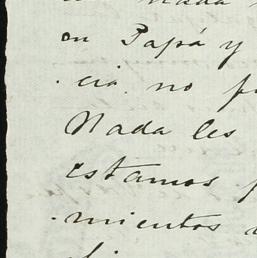 on Papá y
cia no
Nada les
estamos
mientos